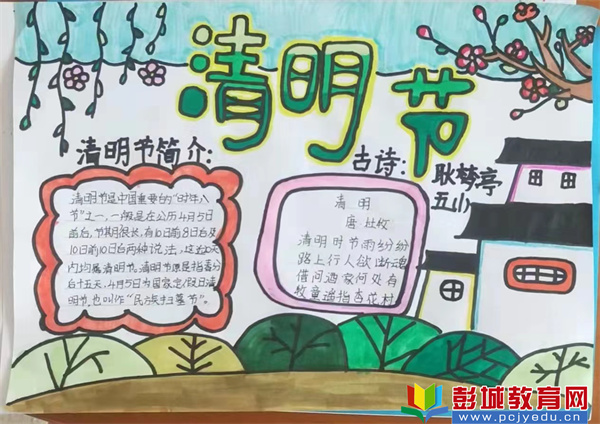 清明节
清明节简介:
古诗:
耿梦亭
五小
清明节是中国重要的“时年八
节”之一,一般是在公历4月5日
前后,节期很长,有10日前8日后及
10日前10日后两种说法,这近20天
内均属清明节。清明节原是指春分
后十五天,4月5日为国家定假日清
明节,也叫作“民族扫墓节”。
清明
唐·杜牧
清明时节雨纷纷
路上行人欲断魂
借问酒家何处有
牧童遥指杏花村
彭城教育网
www.pcjyedu.cn